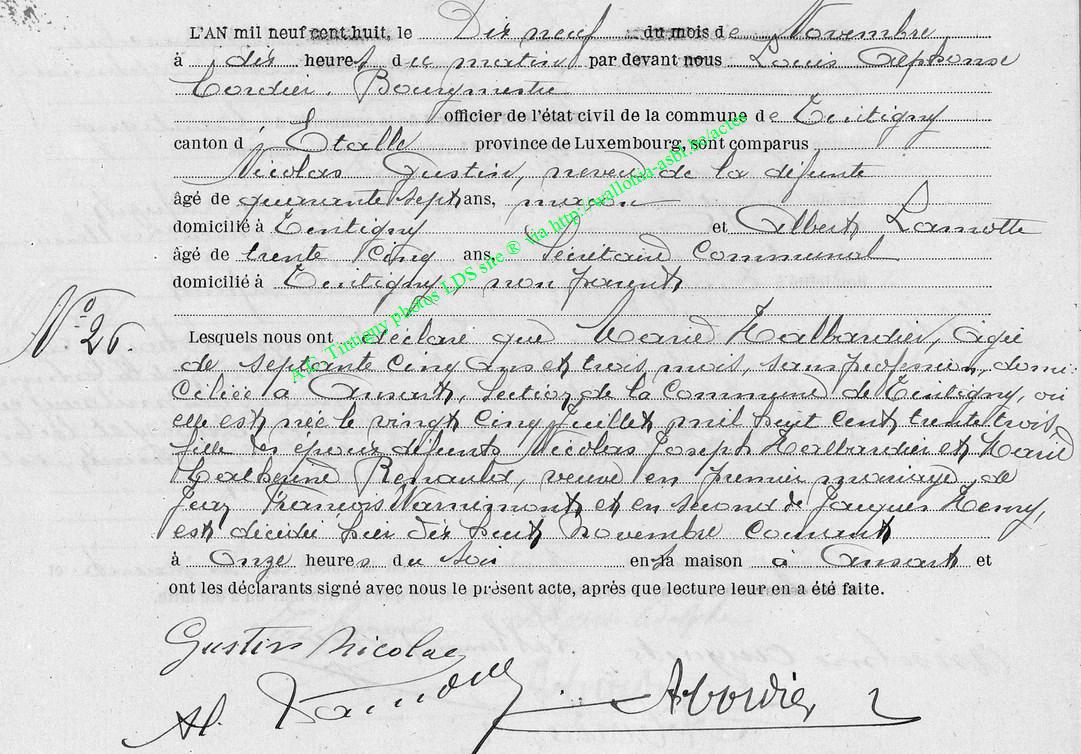 L'AN mil neuf cent huit, le Dix neuf du mois de Novembre
à dix heures du matin par devant nous Louis Alphonse
Cordier, Bourgmestre
officier de l'état civil de la commune de Tintigny
canton d' Etalle province de Luxembourg, sont comparus
Nicolas Gustin, neveu de la défunte
âgé de quarante sept ans, maçon
domicilié à Tintigny et Albert Lamotte
âgé de trente cinq ans, Secrétaire Communal
domicilié à Tintigny, non parent
N° 26
Lesquels nous ont déclaré que Marie Halbardier, agée
de septante cinq ans et trois mois, sans profession, domi-
ciliée à Ansart, section de la commune de Tintigny, où
elle est née le vingt cinq Juillet mil huit cent trente trois,
fille des époux défunts Nicolas Joseph Halbardier et Marie
Catherine Renauld, veuve en premier mariage de
Jean François Warnimont et en second de Jacques Henry,
est décédée hier dix huit Novembre courant
à onze heures du soir en sa maison à Ansart et
ont les déclarants signé avec nous le présent acte, après que lecture leur en a été faite.
Gustin Nicolas
Al. Lamotte ACordier
A.C. Tintigny photos LDS site ® via http://wallonia-asbl.be/actes